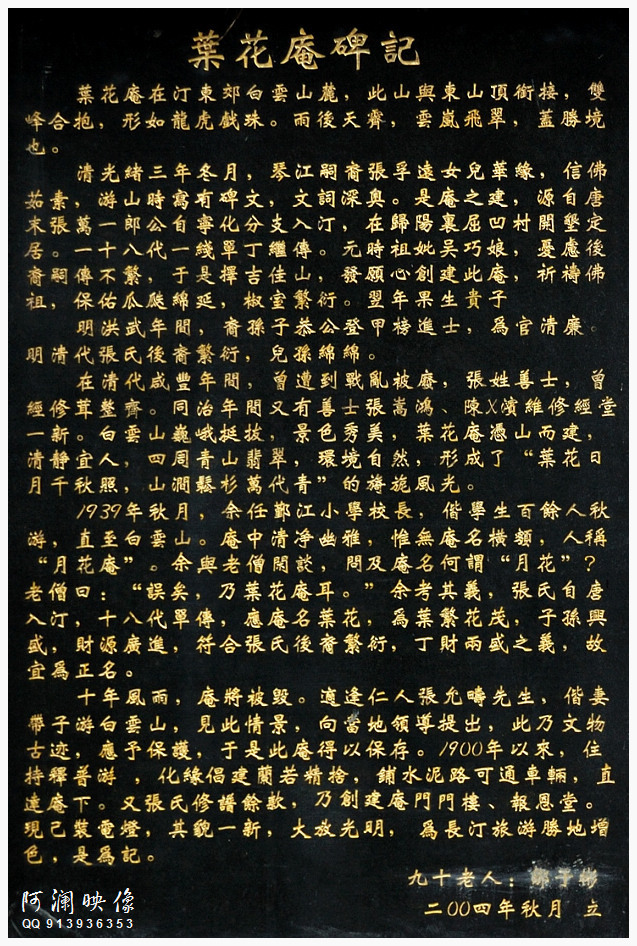 葉花庵碑記
葉花庵在汀東郊白雲山麓，此山與東山頂銜接，雙
峰合抱，形如龍虎戲珠。雨後天霽，雲嵐飛翠，蓋勝境
也。
清光緒三年冬月，琴江嗣裔張孚遠女兒華緣，信佛
茹素，游山時寓有碑文，文詞深奧。是庵之建，源自唐
末張萬一郎公自寧化分支入汀，在歸陽裏屈凹村開墾定
居。一十八代一綫單丁繼傳。元時祖妣吴巧娘，憂慮後
裔嗣傳不繁，于是擇吉佳山，發願心創建此庵，祈禱佛
祖，保佑瓜瓞綿延，椒室繁衍。翌年果生貴子
明洪武年間，裔孫子恭公登甲榜進士，爲官清廉。
明清代張氏後裔繁衍，兒孫綿綿。
在清代咸豐年間，曾遭到戰亂被廢，張姓善士，曾
經修茸整齊。同治年間又有善士張嵩鴻、陳X濱維修經堂
一新。白雲山巍峨挺拔，景色秀美，葉花庵憑山而建，
清静宜人，四周青山翡翠，環境自然，形成了“葉花日
月千秋照，山澗鬆杉萬代青”的旖旎風光。
1939年秋月，余任鄞江小學校長，偕學生百餘人秋
游，直至白雲山。庵中清净幽雅，惟無庵名横額，人稱
“月花庵”。余與老僧閑談，問及庵名何謂“月花”？
老僧曰：“誤矣，乃葉花庵耳。”余考其義，張氏自唐
入汀，十八代單傳，應庵名葉花，爲葉繁花茂，子孫興
盛，財源廣進，符合張氏後裔繁衍，丁財兩盛之義，故
宜爲正名。
十年風雨，庵將被毁。適逢仁人張允疇先生，偕妻
帶子游白雲山，見此情景，向當地領導提出，此乃文物
古迹，應予保護，于是此庵得以保存。1900年以來，住
持釋普游 ，化緣倡建蘭若精捨，鋪水泥路可通車輛，直
達庵下。又張氏修譜餘款，乃創建庵門門樓、報恩堂。
現已裝電燈，其貌一新，大放光明， 爲長汀旅游勝地增
色，是爲記。
九十老人：鄭子彬
二00四年秋月 立
阿澜映像
QQ 913936353